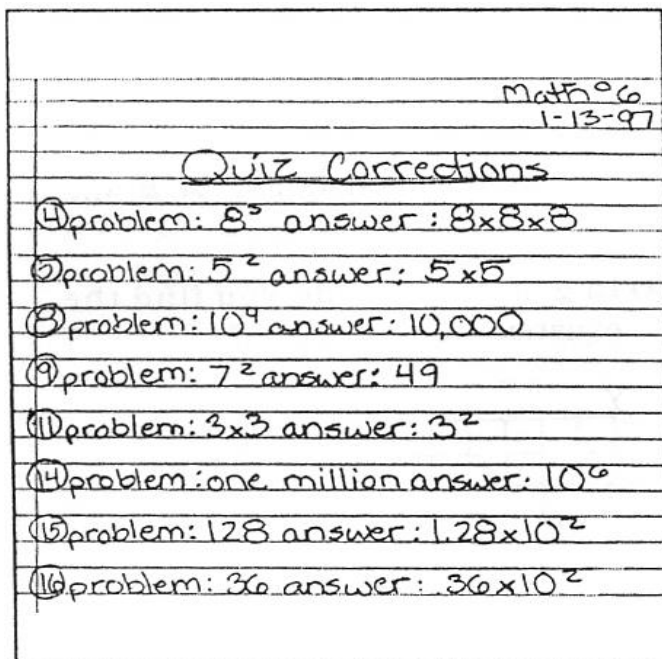 Math° 6
1-13-97
Quiz Corrections
④ problem: 8³ answer: 8x8x8
⑤ problem: 5² answer: 5x5
⑧ problem: 10⁴ answer: 10,000
⑨ problem: 7² answer: 49
⑪ problem: 3x3 answer: 3²
⑭ problem: one million answer: 10⁶
⑮ problem: 128 answer: 1.28x10²
⑯ problem: 36 answer: 36x10²